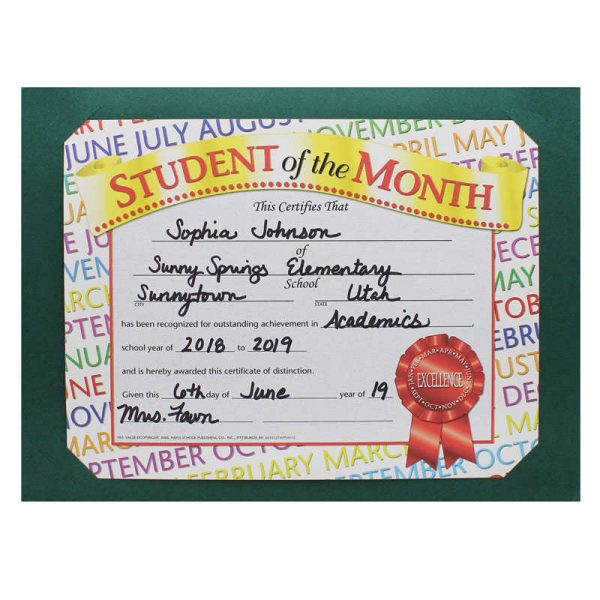 STUDENT of the MONTH
This Certifies That
Sophia Johnson
of
Sunny Springs Elementary
School
Sunnytown Utah
CITY STATE
has been recognized for outstanding achievement in Academics
school year of 2018 to 2019
and is hereby awarded this certificate of distinction.
Given this 6th day of June year of 19
Mrs. Fawn
EXCELLENCE
JAN•FEB•MAR•APR•MAY•JUN
SEPT•OCT•NOV•DEC
JUNE JULY AUGUST
NOVEMBER
APRIL MAY
SEPTEMBER OCTOBER
FEBRUARY MARCH